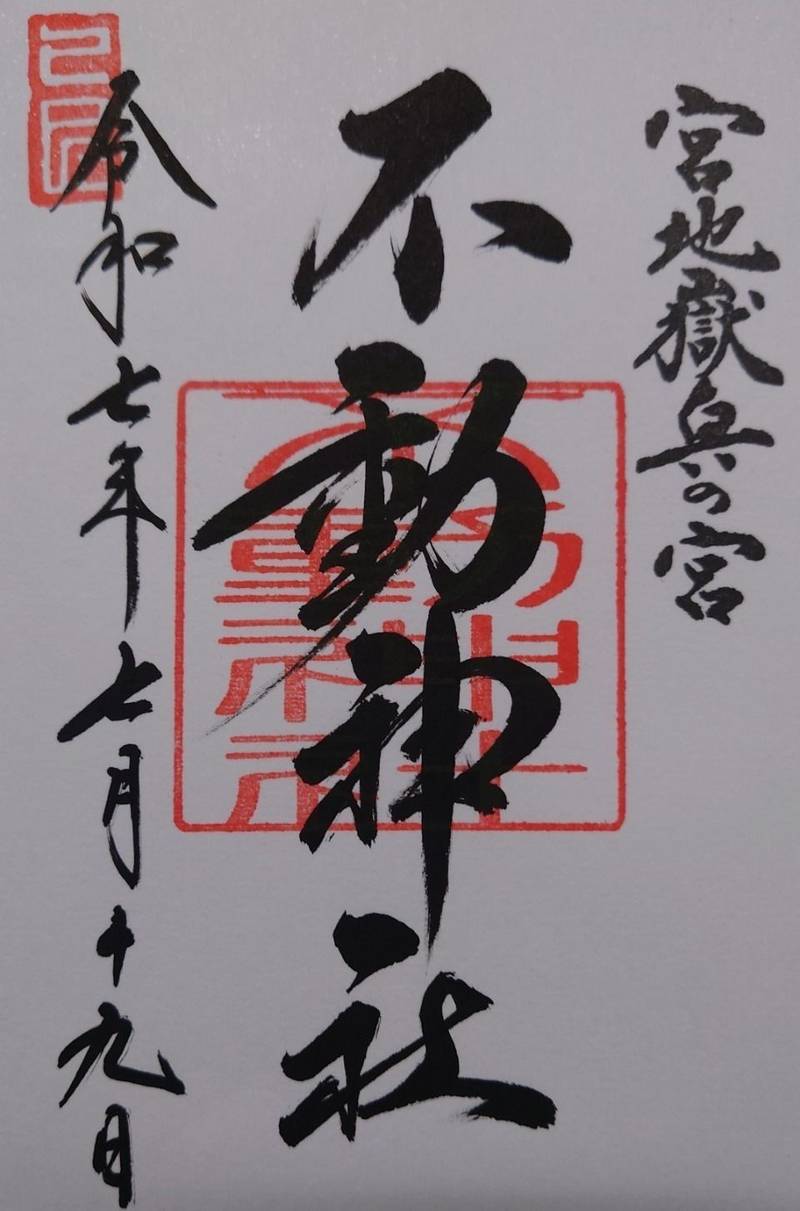 宮地嶽奥の宮
不動神社
令和七年七月十九日
乙巳
不動神社